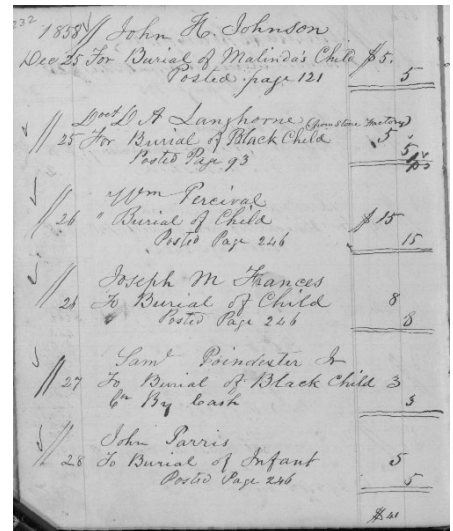 232
1858 // John H. Johnson
Dec 25 For Burial of Malinda's Child $5.
Posted page 121 5
Doct D A Langhorne (from Stone Factory)
// 25 For Burial of Black Child 5
Posted Page 93 5
Wm Percival
// 26 " Burial of Child $15
Posted Page 246 15
Joseph M Frances
// 26 To Burial of Child 8
" Posted Page 246 8
Saml Poindexter Jr
// 27 To Burial of Black Child 3
Cr By Cash 3
John Parris
// 28 To Burial of Infant 5
Posted Page 246 5
$41